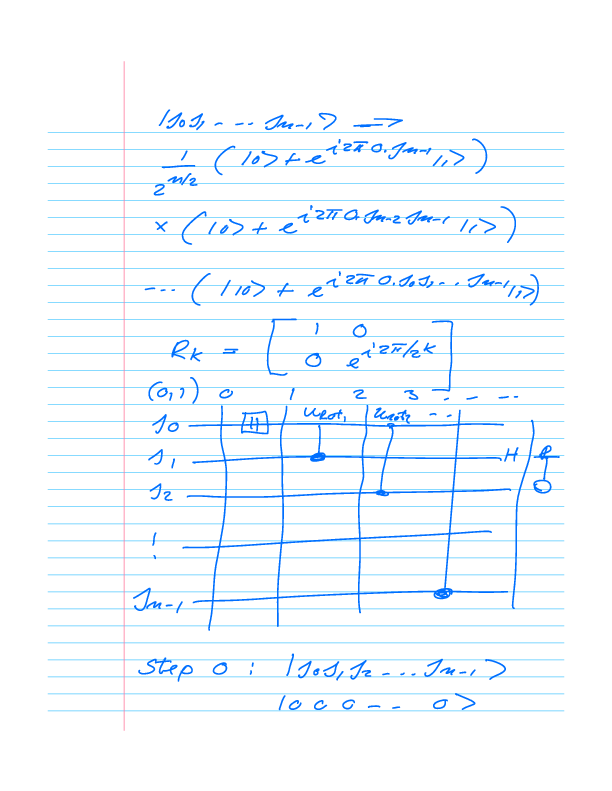 |J₀J₁ - - - Jₙ₋₁⟩ ⟹
1/2^{n/2} (|0⟩ + e^{i2π0.Jₙ₋₁}|1⟩)
× (|0⟩ + e^{i2π0.Jₙ₋₂Jₙ₋₁}|1⟩)
--- (|10⟩ + e^{i2π0.J₀J₁...Jₙ₋₁}|1⟩)
Rₖ = [1 0
0 e^{i2π/2^k}]
(0,1) 0 1 2 3 - - - --
J₀ H Uᵣₒₜ₁ Uᵣₒₜ₂ --
J₁ H R
J₂
⋮
Jₙ₋₁
Step 0 : |J₀J₁J₂ --- Jₙ₋₁⟩
|0 0 0 -- 0⟩